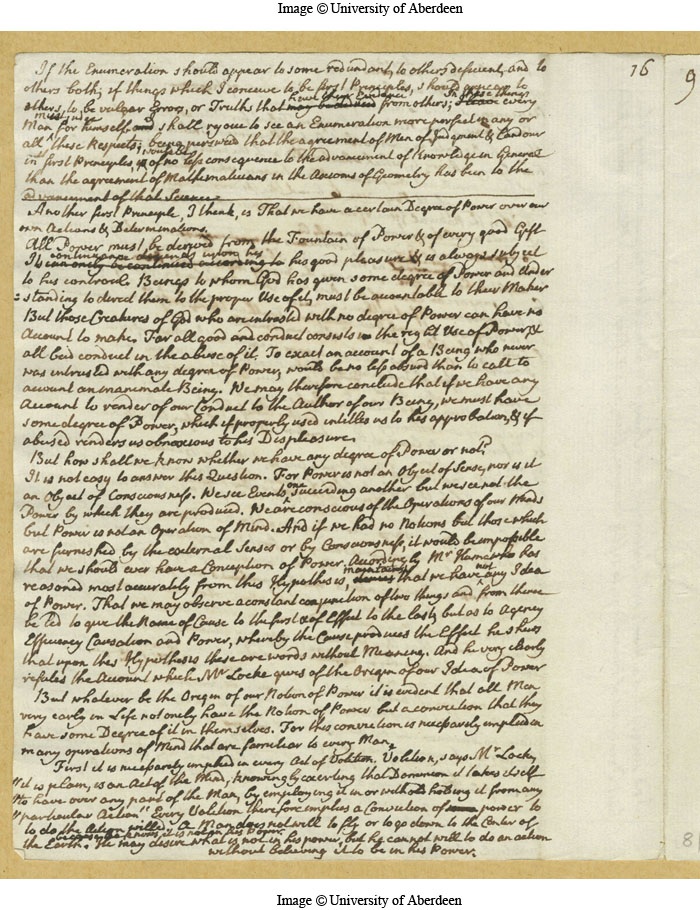 Image © University of Aberdeen
16
9
If the Enumeration should appear to some redundant, to others deficient, and to
others both; if things which I conceive to be first Principles, should appear to
others, to be vulgar Errors, or Truths that have their Evidence from others; In these things every
Man must judge for himself, I shall rejoice to see an Enumeration more perfect in any or
all these Respects; being perswaded that the agreement of Men of Judgment & Candour
in first Principles, would be of no less consequence to the advancement of Knowledge in General
than the agreement of Mathematicians in the Axioms of Geometry has been to the
advancement of that Science.
Another first Principle, I think, is That we have a certain Degree of Power over our
own Actions & Determinations.
All Power must be derived from the Fountain of Power & of every good Gift
Its continuance depends upon his good pleasure & is always subject
to his controul. Beings to whom God has given some degree of Power and Under
=standing to direct them to the proper Use of it, must be accountable to their Maker
But those Creatures of God who are intrusted with no degree of Power can have no
Account to make. For all good and conduct consists in the right Use of Power, &
all bad conduct in the abuse of it. To exact an account of a Being who never
was intrusted with any degree of Power, would be no less absurd than to call to
account an inanimate Being. We may therefore conclude that if we have any
Account to render of our Conduct to the Author of our Being, we must have
some degree of Power, which if properly used intitles us to his approbation, & if
abused renders us obnoxious to his Displeasure.
But how shall we know whether we have any degree of Power or not?
It is not easy to answer this Question. For Power is not an Object of Sense, nor is it
an Object of Consciousness. We see Events, one succeeding another but we see not the
Power by which they are produced. We are conscious of the Operations of our Minds
but Power is not an Operation of Mind. And if we had no Notions but those which
are furnished by the external Senses or by Consciousness, it would be impossible
that we should ever have a Conception of Power. Accordingly Mr Hume who has
reasoned most accurately from this Hypothesis, maintains that we have not any Idea
of Power. That we may observe a constant conjunction of two things and from thence
be led to give the Name of Cause to the first & of Effect to the last, but as to Agency
Efficiency Causation and Power, whereby the Cause produces the Effect he shews
that upon this Hypothesis these are words without Meaning. And he very clearly
refutes the Account which Mr Locke gives of the Origin of our Idea of Power
But whatever be the Origin of our Notion of Power it is evident that all Men
very early in Life not onely have the Notion of Power but a conviction that they
have some Degree of it in themselves. For this conviction is necessarily implied in
many operations of Mind that are familiar to every Man.
First it is necessarily implied in every Act of Volition. Volition, says Mr Locke,
"it is plain, is an Act of the Mind, knowingly exerting that Dominion it takes itself
"to have over any part of the Man, by employing it in or withholding it from any
"particular Action" Every Volition therefore implies a Conviction of power to
to do the Action willed. A Man does not will to fly or to go down to the Center of
the Earth, because he knows it is not in his Power. He may desire what is not in his power, but he cannot will to do an action
without believing it to be in his Power.
8
Image © University of Aberdeen